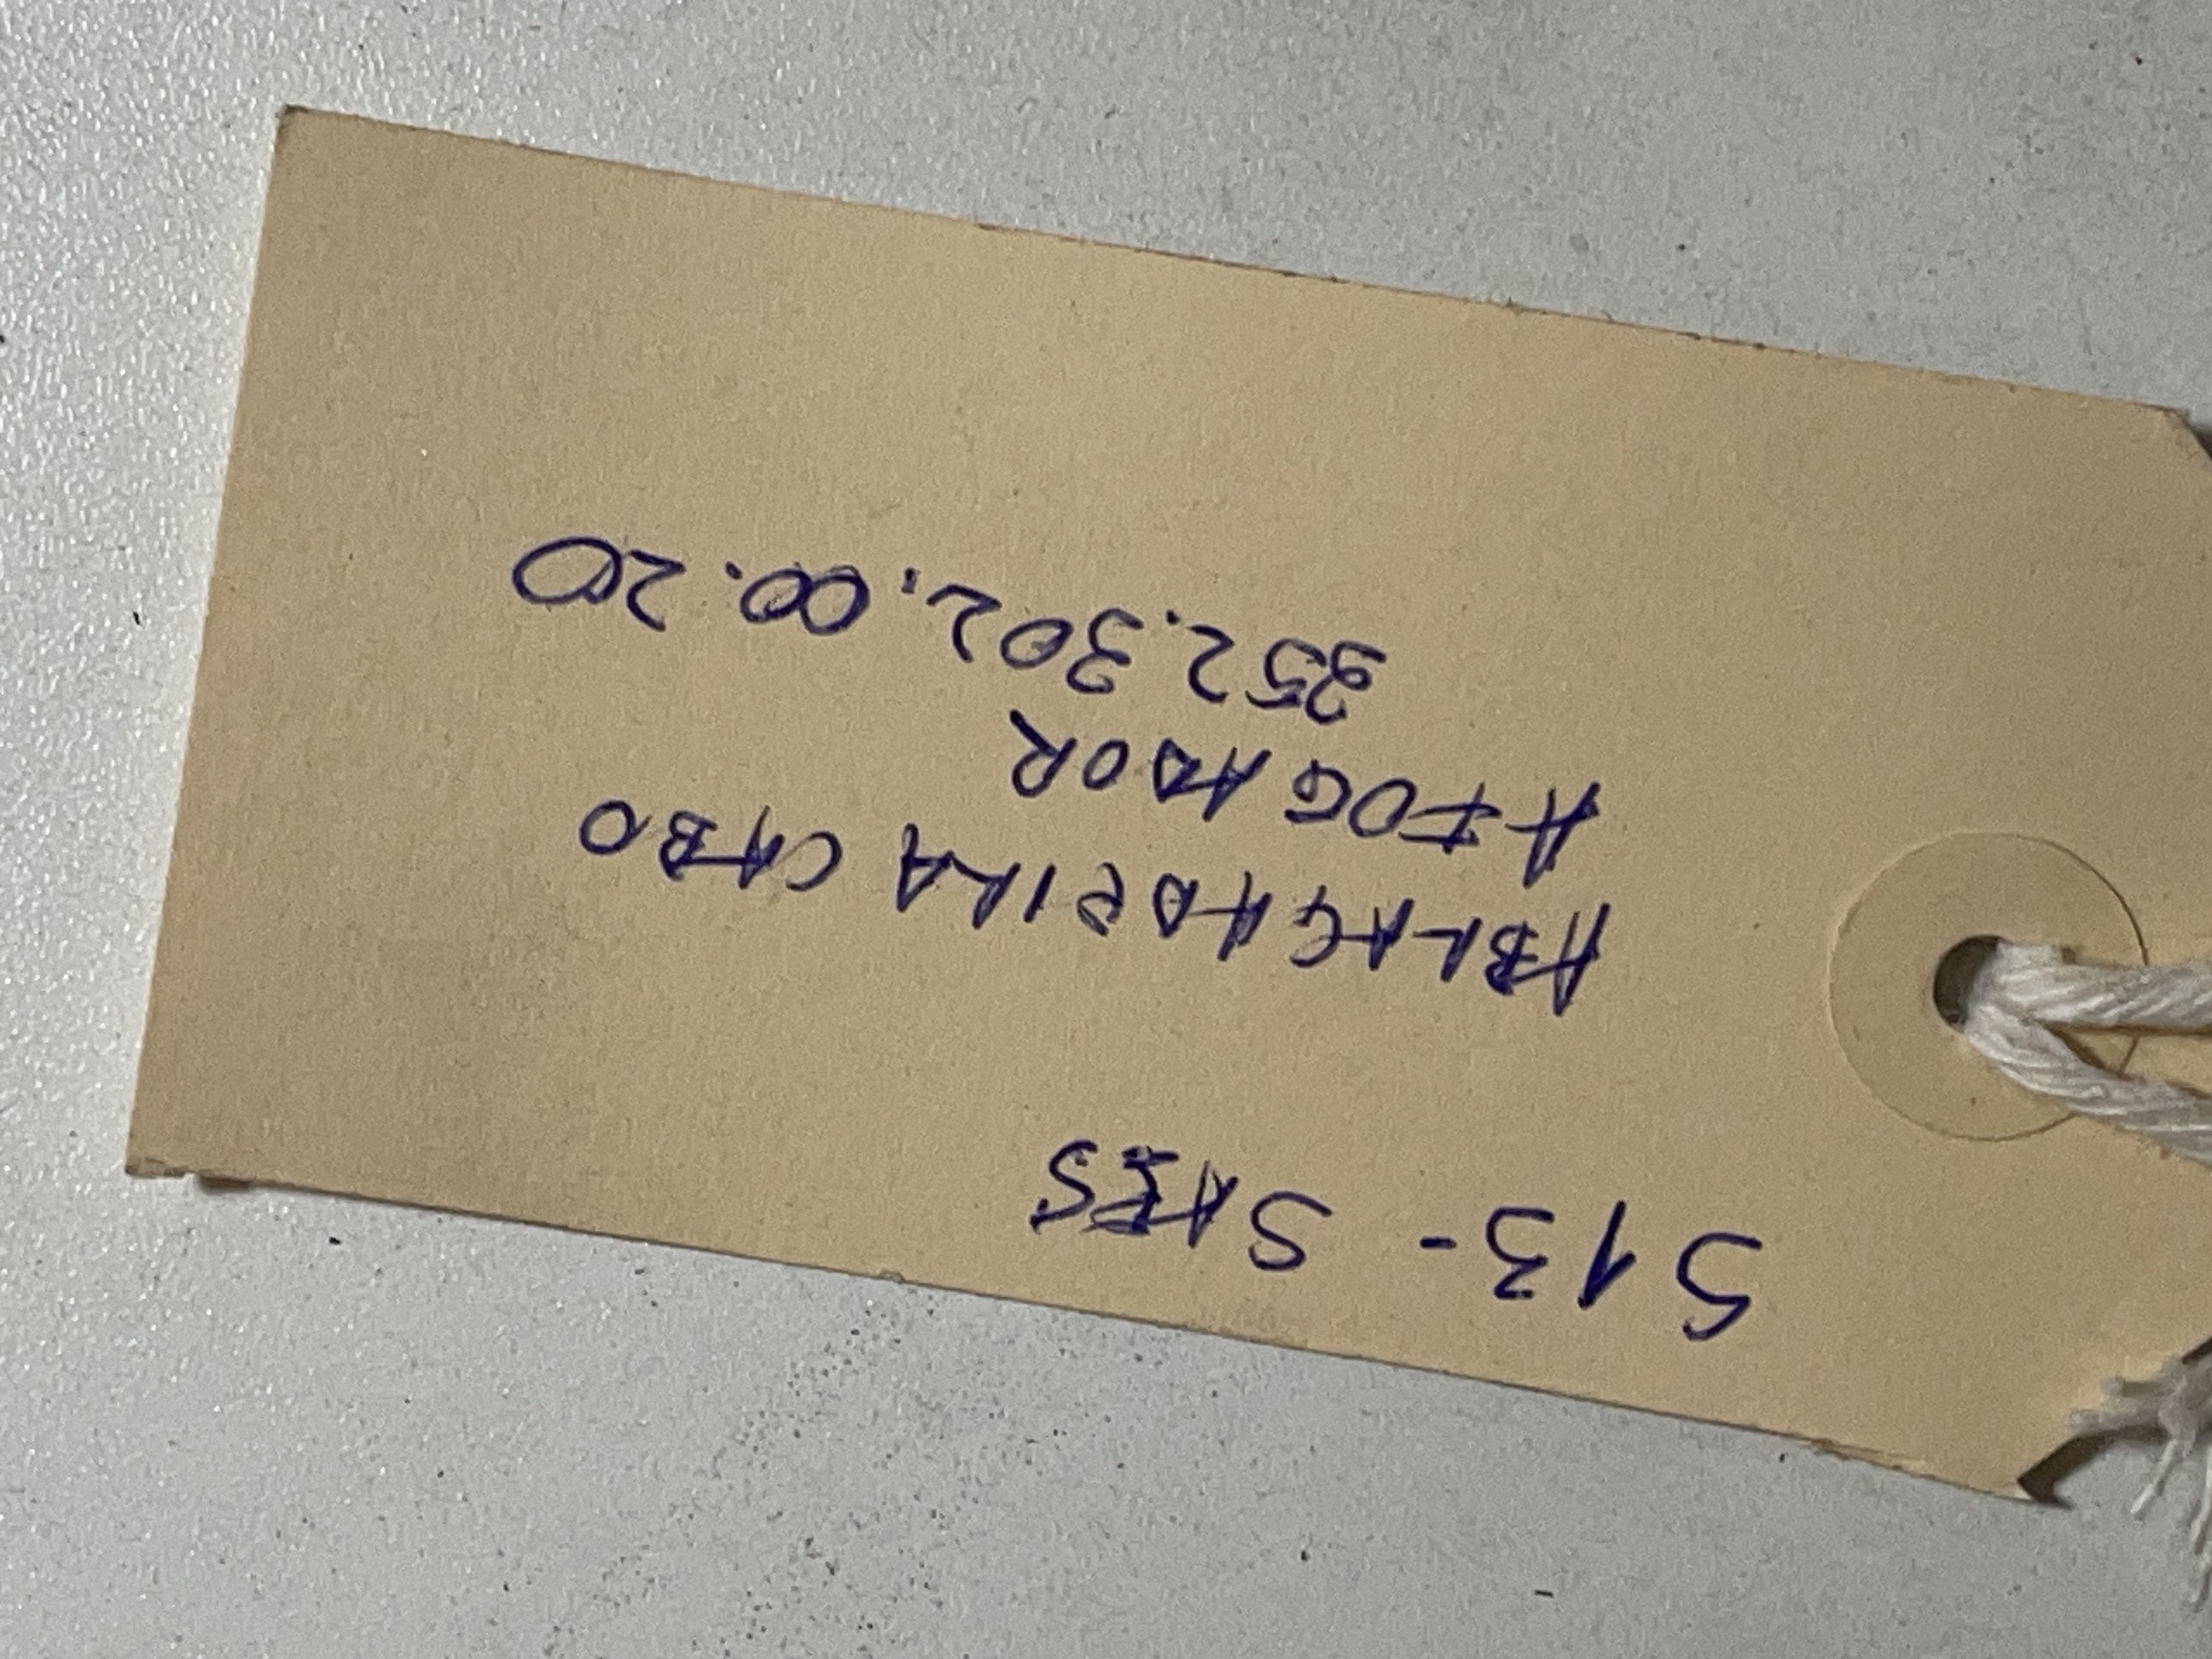 S13-
ABRAÇADEIRA CABO
AFOGADOR
352.302.00.20